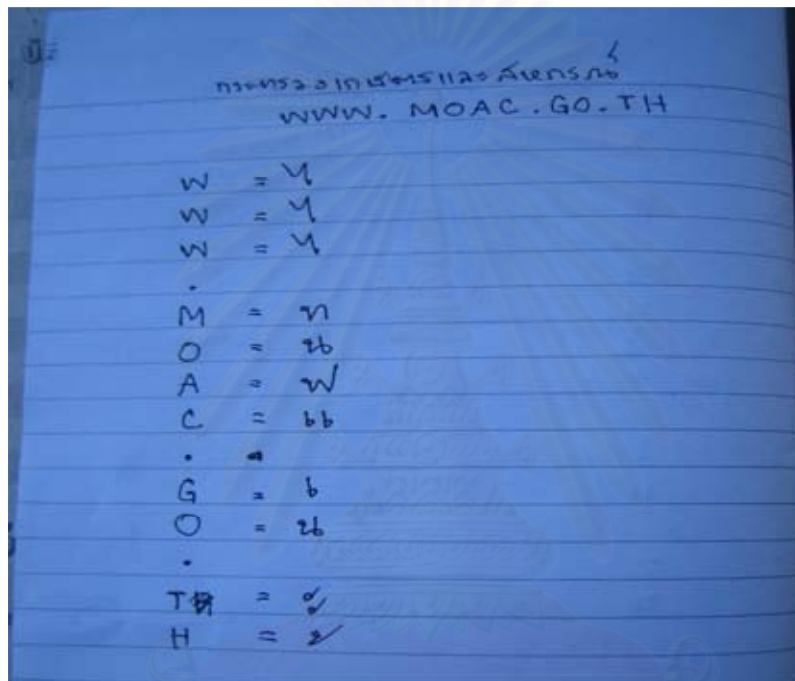 กระทรวงเกษตรและสหกรณ์
WWW. MOAC.GO.TH
W = ไ
W = ไ
W = ไ
.
M = ท
O = น
A = ฟ
C = แ
.
G = เ
O = น
.
T = ะ
H = ้